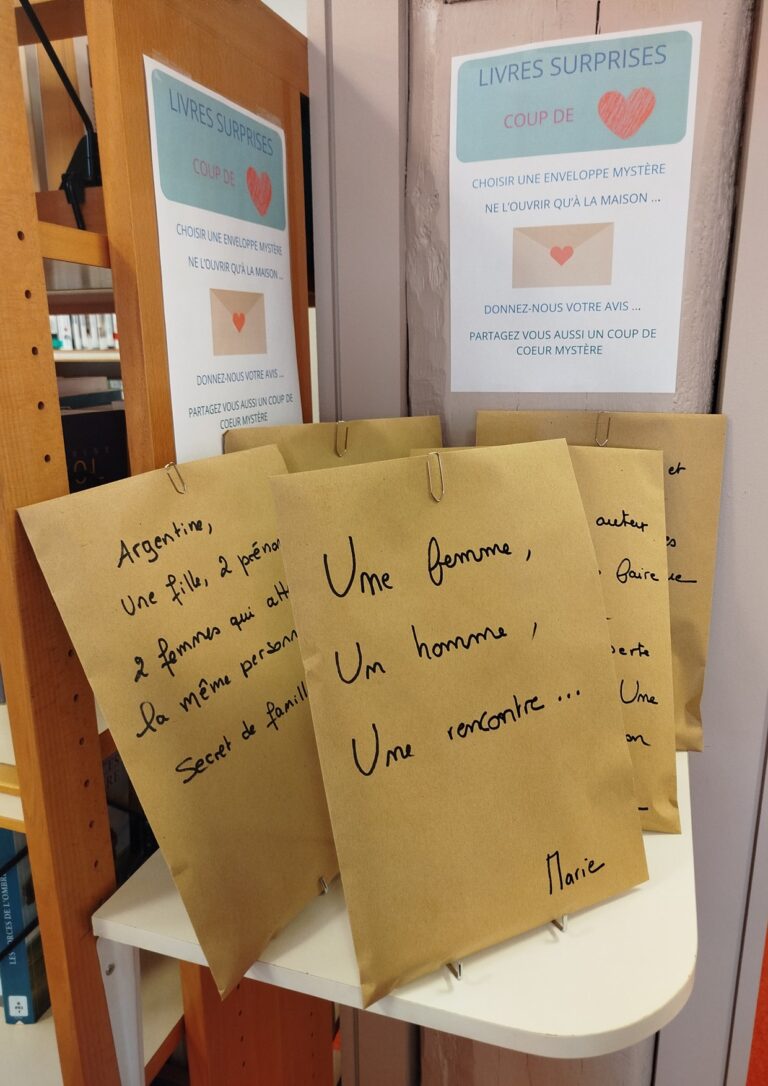 LIVRES SURPRISES
COUP DE
CHOISIR UNE ENVELOPPE MYSTÈRE
NE L'OUVRIR QU'À LA MAISON ...
DONNEZ-NOUS VOTRE AVIS ...
PARTAGEZ VOUS AUSSI UN COUP DE
COEUR MYSTÈRE
LIVRES SURPRISES
COUP DE
CHOISIR UNE ENVELOPPE MYSTÈRE
NE L'OUVRIR QU'À LA MAISON ...
DONNEZ-NOUS VOTRE AVIS ...
PARTAGEZ VOUS AUSSI UN COUP DE
COEUR MYSTÈRE
Argentine,
Une fille, 2 prénom
2 femmes qui att
la même personn
Secret de famill
Une femme,
Un homme,
Une rencontre ...
Marie
et
auteur
es
faire
perte
Une
on